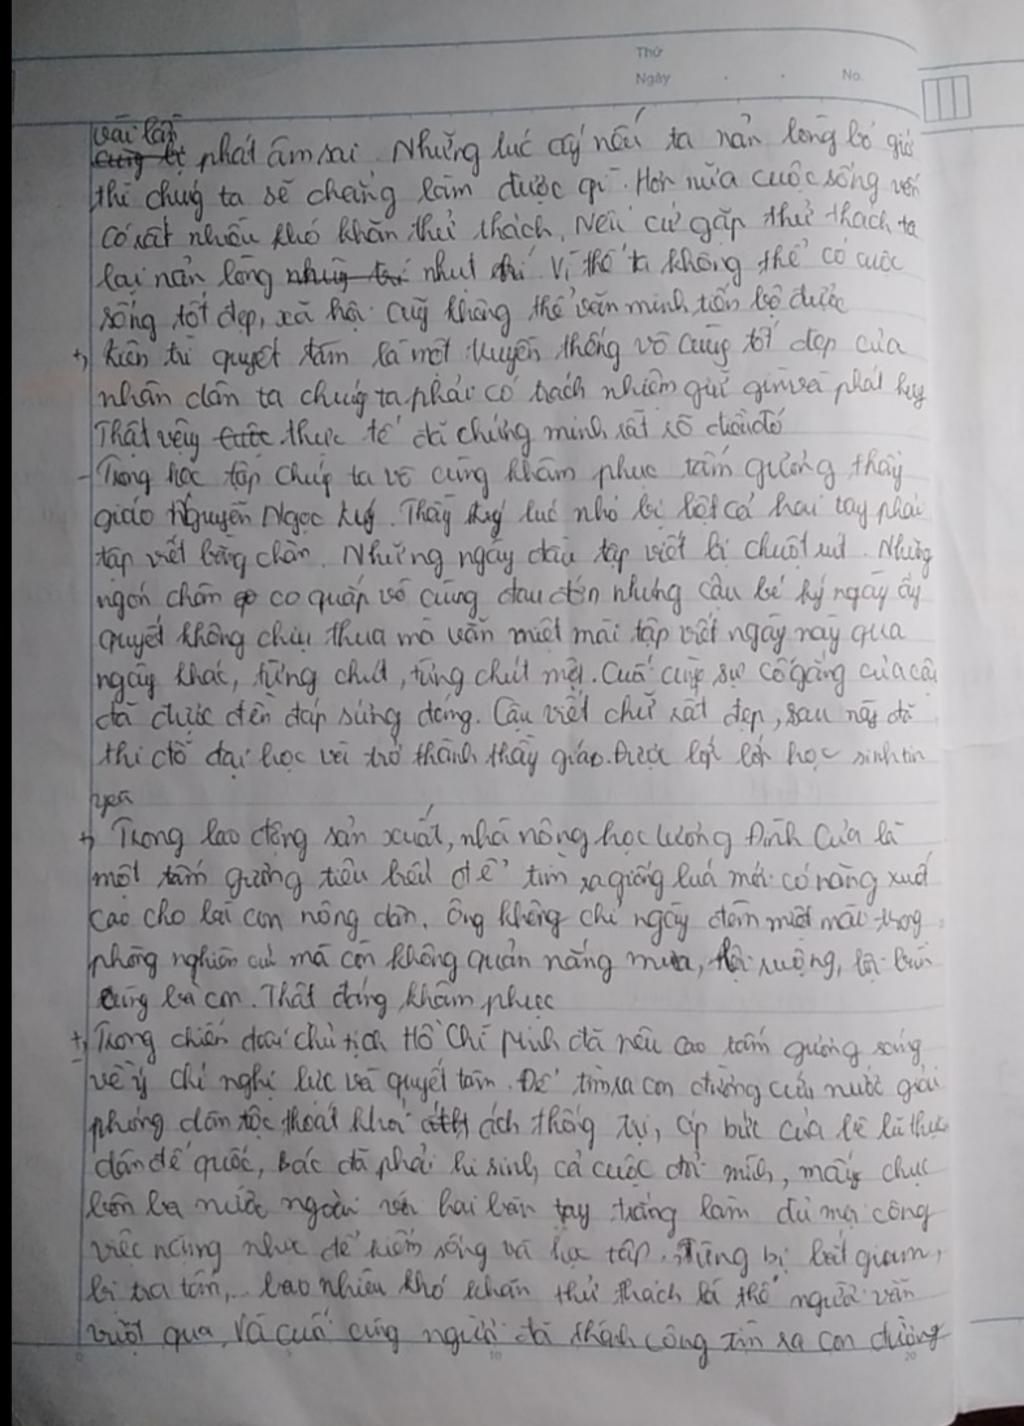 Thứ
Ngày . . No.
vài lần
phát âm sai. Những lúc ấy nếu ta nản lòng bỏ giở
thì chúng ta sẽ chẳng làm được gì. Hơn nữa cuộc sống vốn
có rất nhiều khó khăn thử thách. Nếu cứ gặp thử thách ta
lại nản lòng nhụt chí Vì thế ta không thể có cuộc
sống tốt đẹp, xã hội cũng không thể văn minh, tiến bộ được
+, Kiên trì quyết tâm là một truyền thống vô cùng tốt đẹp của
nhân dân ta chúng ta phải có trách nhiệm giữ gìn và phát huy
Thật vậy thực tế đã chứng minh rất rõ điều đó
- Trong học tập chúng ta vô cùng khâm phục tấm gương thầy
giáo Nguyễn Ngọc Ký. Thầy Ký lúc nhỏ bị liệt cả hai tay phải
tập viết bằng chân. Những ngày đầu tập viết bị chuột rút. Những
ngón chân co quắp vô cùng đau đớn nhưng cậu bé Ký ngày ấy
quyết không chịu thua mà vẫn miệt mài tập viết ngày này qua
ngày khác, từng chút, từng chút một. Cuối cùng sự cố gắng của cậu
đã được đền đáp xứng đáng. Cậu viết chữ rất đẹp, sau này đã
thi đỗ đại học và trở thành thầy giáo. Được lớp lớp học sinh tin
yêu
+, Trong lao động sản xuất, nhà nông học Lương Đình Của là
một tấm gương tiêu biểu để tìm ra giống lúa mới có năng xuất
cao cho bà con nông dân. Ông không chỉ ngày đêm miệt mài trong
phòng nghiên cứu mà còn không quản nắng mưa, ruộng, lội bùn
cùng bà con. Thật đáng khâm phục
+, Trong chiến đấu chủ tịch Hồ Chí Minh đã nêu cao tấm gương sáng
về ý chí nghị lực và quyết tâm. Để tìm ra con đường cứu nước giải
phóng dân tộc thoát khỏi ách thống trị, áp bức của bè lũ thực
dân đế quốc, Bác đã phải hi sinh cả cuộc đời mình, mấy chục
bôn ba nước ngoài với hai bàn tay trắng làm đủ mọi công
việc nặng nhọc để kiếm sống và học tập. Từng bị bắt giam,
bị tra tấn,... bao nhiêu khó khăn thử thách là thế người vẫn
vượt qua. Và cuối cùng người đã thành công tìm ra con đường
0 5 10 20